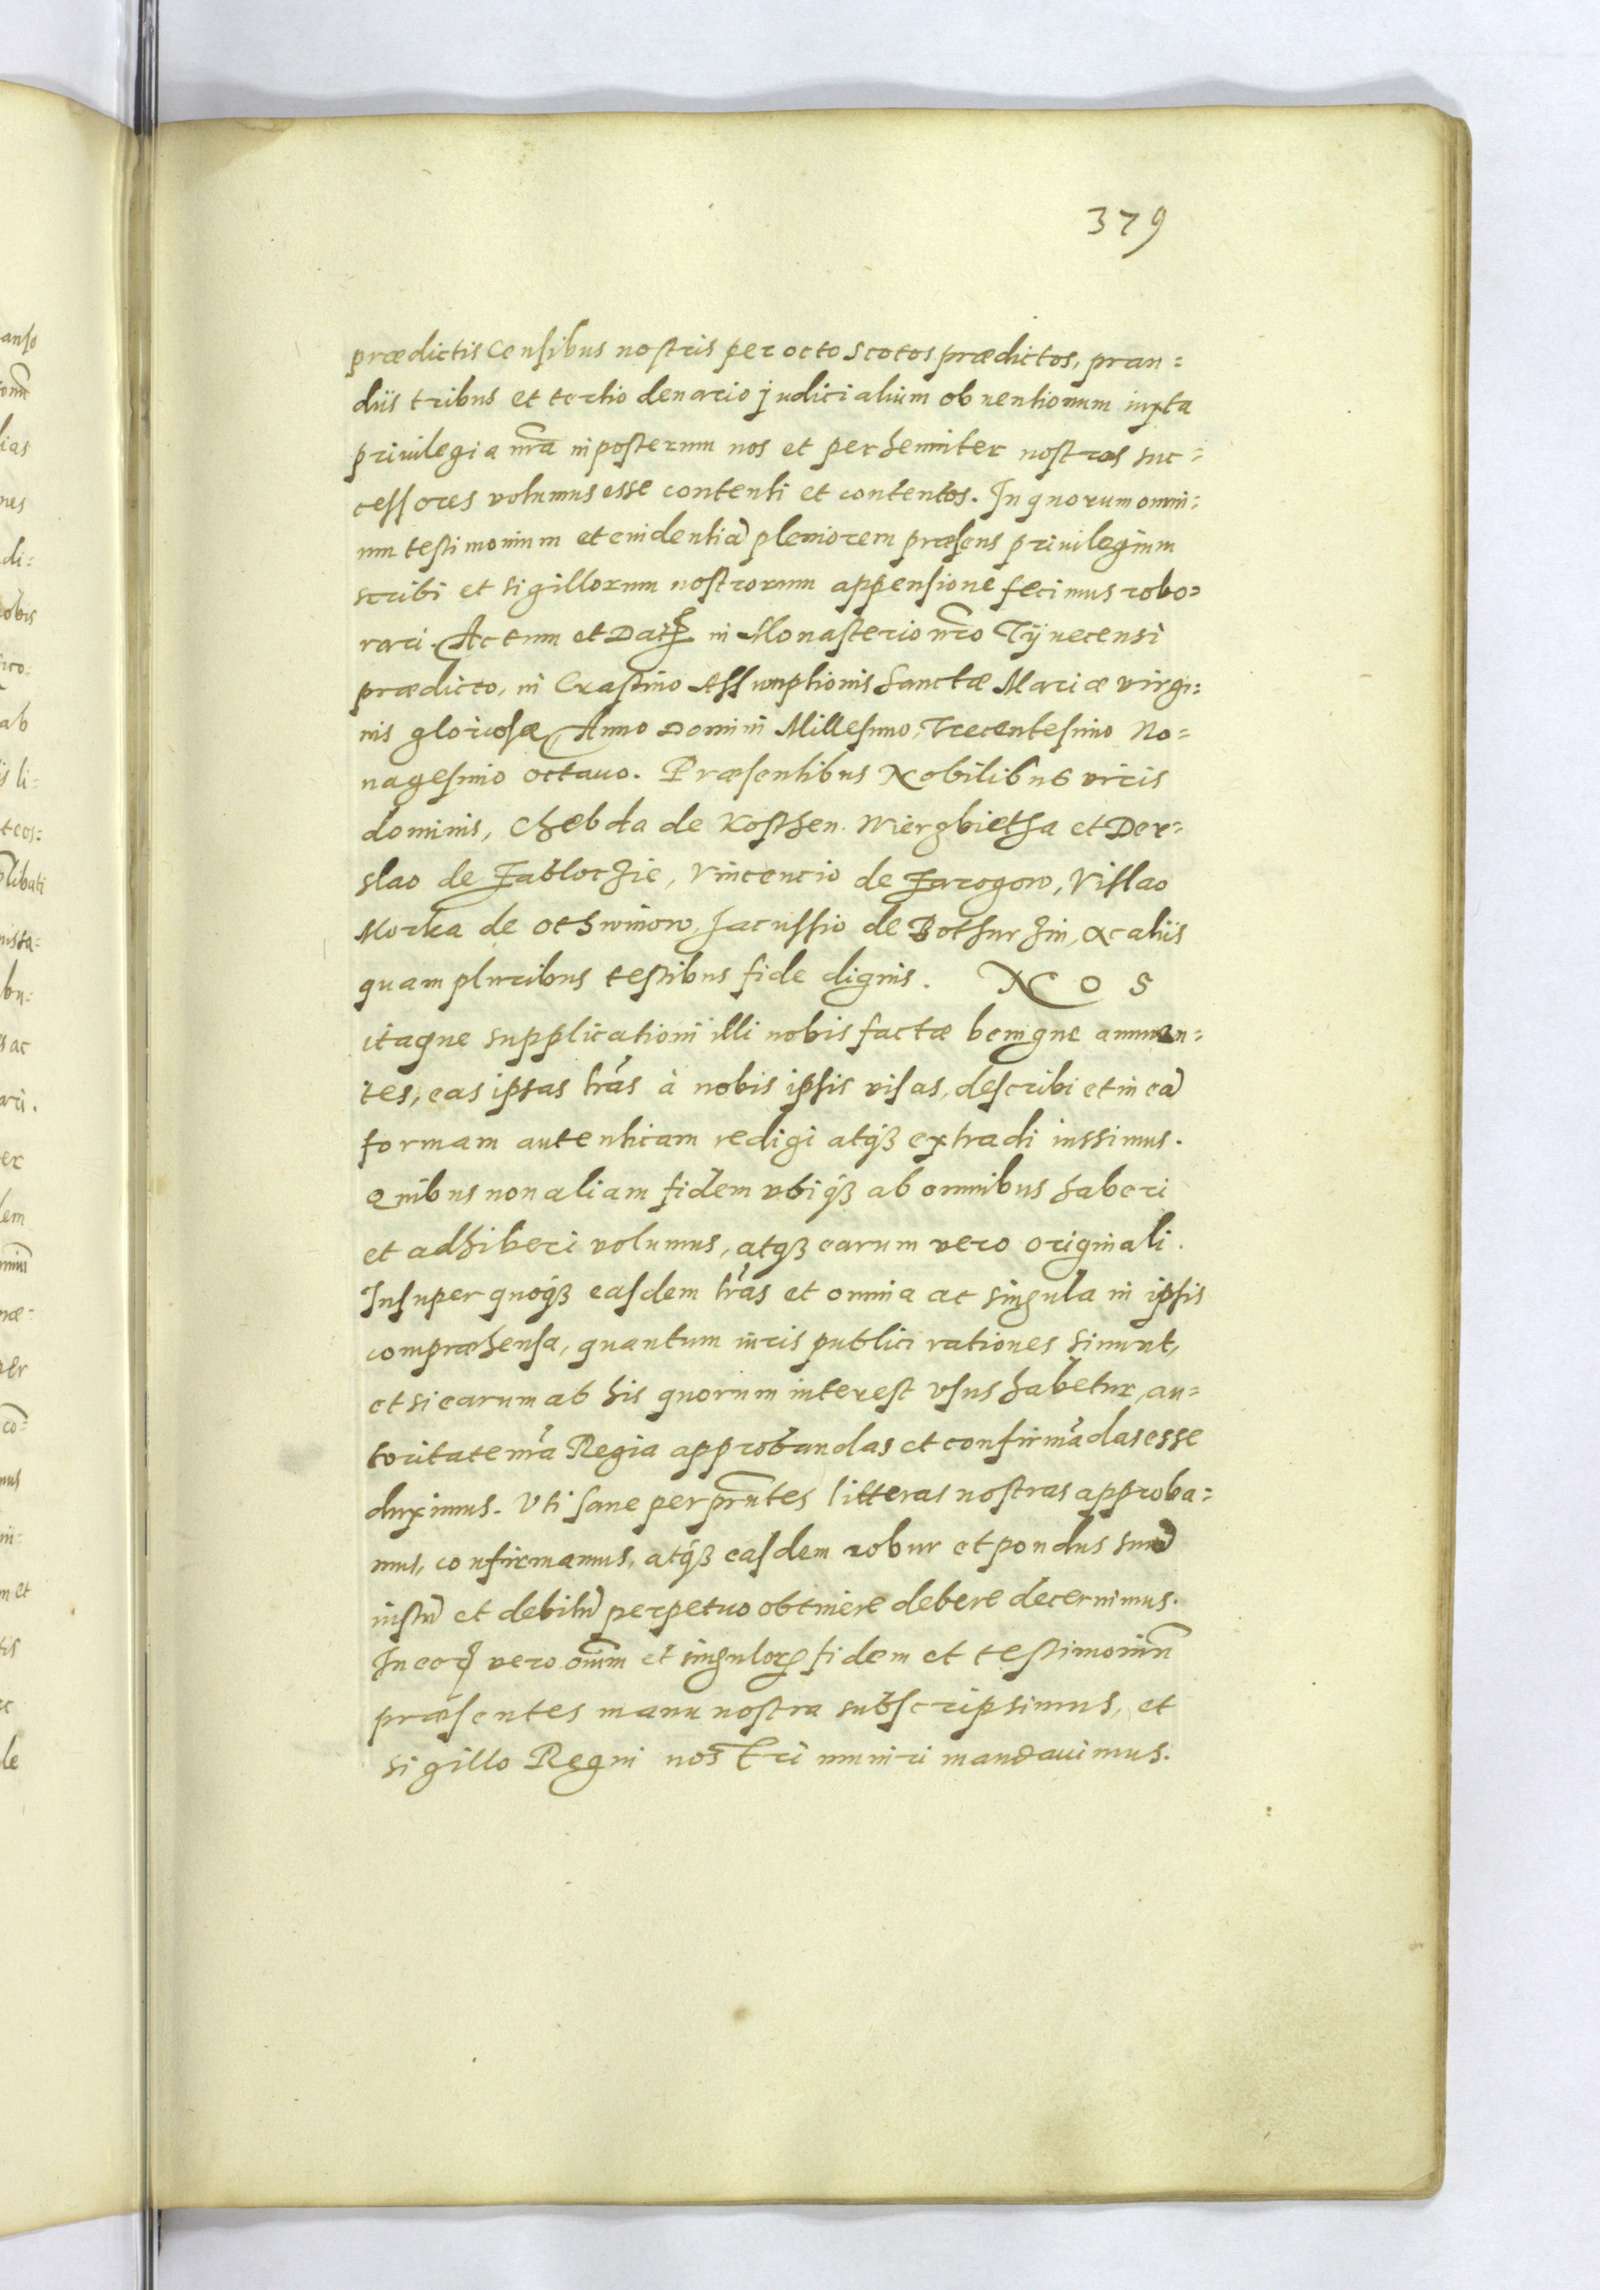 379
prædictis Censibus nostris per octo Scotos prædictos, pran=
diis tribus et tertio denario judicialium obuentionum iuxta
priuilegia nrã in posterum nos et perhenniter nostros suc=
cessores volumus esse contenti et contentos. In quorum omni=
um testimonium et euidentiã pleniorem præsens priuilegium
scribi et sigillorum nostrorum appensione fecimus robo=
rari. Actum et Datꝭ in Monasterio nrõ Tÿnecensi
prædicto, in Crastino Assumptionis Sanctæ Mariæ virgi=
nis gloriosæ, Anno Domini Millesimo, Trecentesimo No=
nagesimo octauo. Præsentibus Nobilibus viris
dominis, Chebda de Kosthen. Wiergbietha et Der=
slao de Jablochie, Vincencio de Jarogow, Vislao
Morka de Othwinow, Jacussio de Bothurzin, ac aliis
quam pluribus testibus fide dignis. NOS
itaque supplicationi illi nobis factæ benigne annuen=
tes, eas ipsas lrãs à nobis ipsis visas, describi et in eã
formam autenticam redigi atqȝ extradi iussimus.
Quibus non aliam fidem vbiqȝ ab omnibus haberi
et adhiberi volumus, atqȝ earum vero originali.
Insuper quoqȝ easdem lrãs et omnia ac singula in ipsis
compræhensa, quantum iuris publici rationes sinunt,
et si earum ab his quorum interest vsus habetur, au=
toritate nrã Regia approbandas et confirmãdas esse
duximus. Vti sane per prñtes litteras nostras approba=
mus, confirmamus, atqȝ easdem robur et pondus suũ
iustũ et debitũ perpetuo obtinere debere decernimus.
In eoꝝ vero oĩm et singuloꝝ fidem et testimoniũ
præsentes manu nostra subscripsimus, et
sigillo Regni nostri muniri mandauimus.